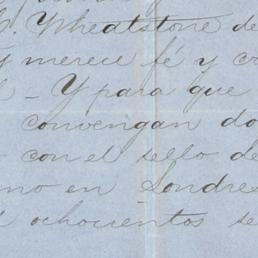 Wheatstone de
merece fé y
Y para que
convengan
con el sello de
en Londres
ochocientos se